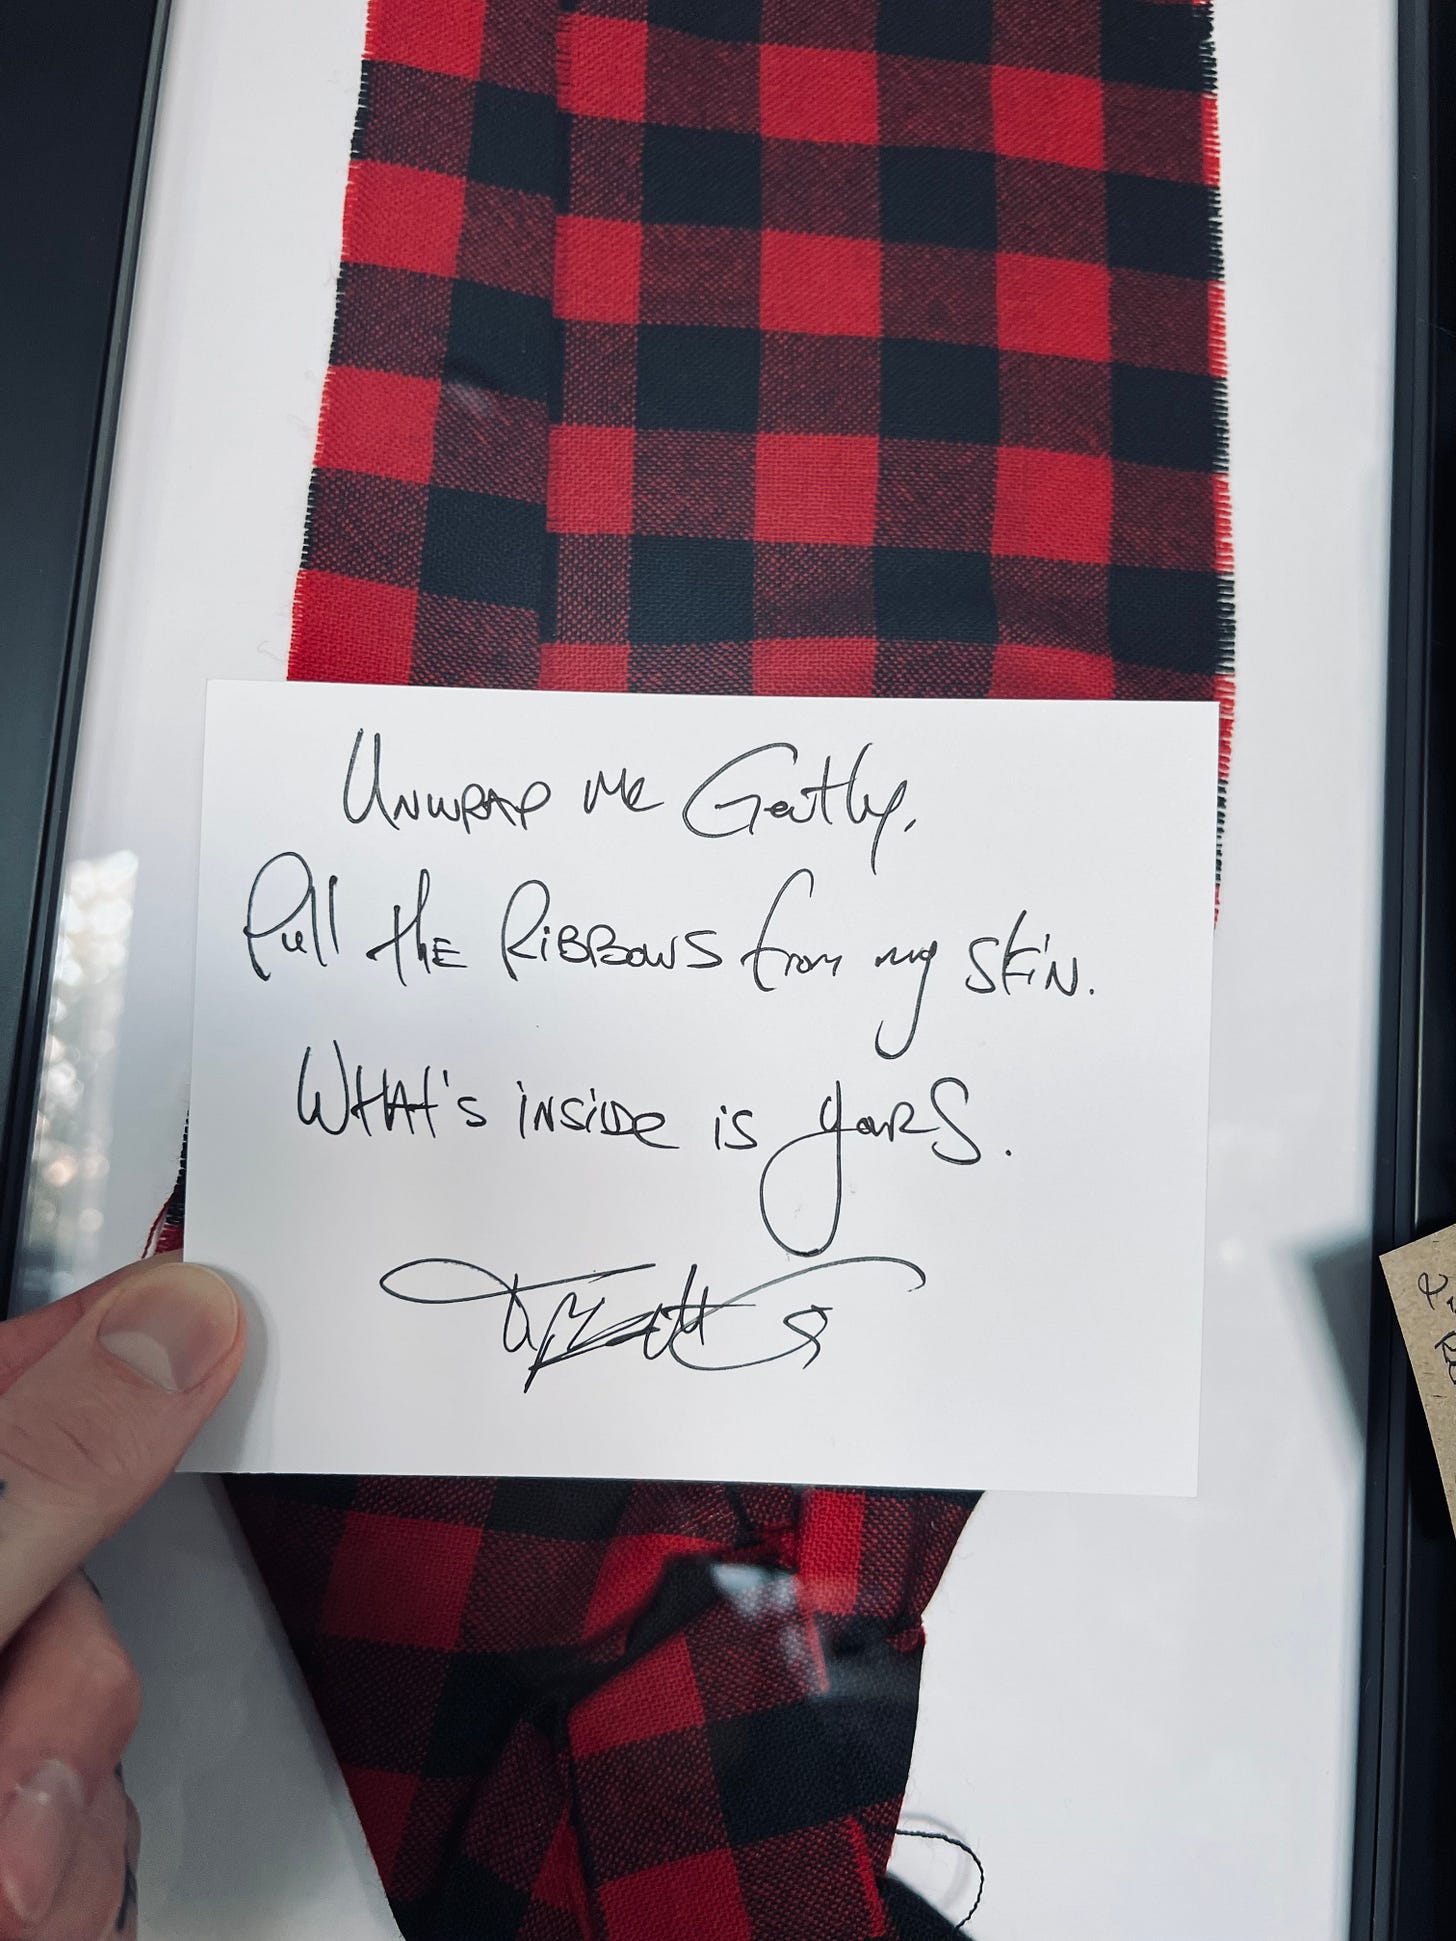 Unwrap me Gently.
Pull the Ribbons from my skin.
What's inside is yours.